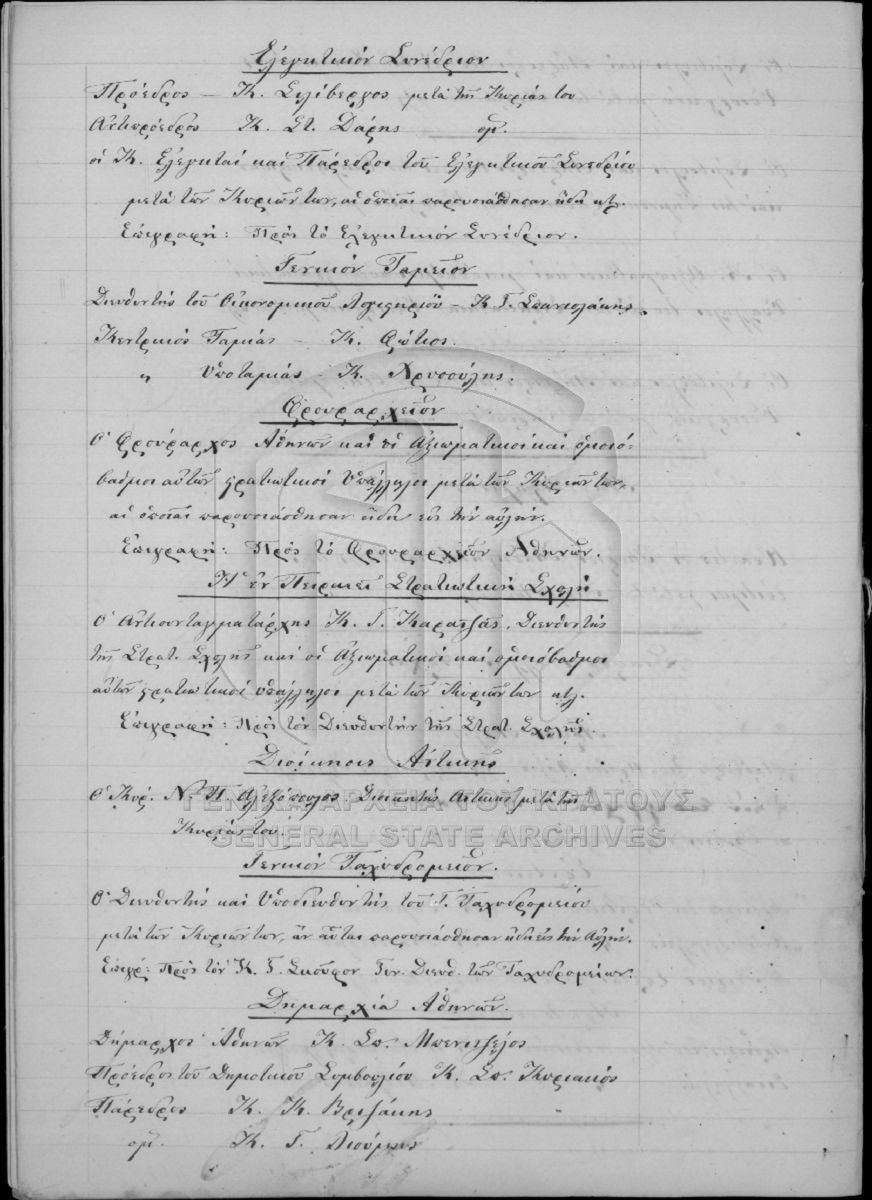 Ἐλεγκτικὸν Συνέδριον
Πρόεδρος — Κ. Σιλίβεργος μετὰ τῆς Κυρίας του
Ἀντιπρόεδρος Κ. Στ. Δάρης ὁμ.
οἱ Κ. Ἐλεγκταὶ καὶ Πάρεδροι τοῦ Ἐλεγκτικοῦ Συνεδρίου
μετὰ τῶν Κυριῶν των, αἱ ὁποῖαι παρουσιάσθησαν ἤδη κτλ.
Ἐπιγραφή: Πρὸς τὸ Ἐλεγκτικὸν Συνέδριον.
Γενικὸν Ταμεῖον
Διευθυντὴς τοῦ Οἰκονομικοῦ Λογιστηρίου — Κ Γ. Σπανιολάκης.
Κεντρικὸς Ταμίας — Κ. Φώτιος.
〃 Ὑποταμίας — Κ. Χρυσούλης.
Φρουραρχεῖον
Ὁ Φρούραρχος Ἀθηνῶν καὶ οἱ Ἀξιωματικοὶ καὶ ὁμοιό-
βαθμοι αὐτῶν στρατιωτικοὶ Ὑπάλληλοι μετὰ τῶν Κυριῶν των,
αἱ ὁποῖαι παρουσιάσθησαν ἤδη εἰς τὴν αὐλήν.
Ἐπιγραφή: Πρὸς τὸ Φρουραρχεῖον Ἀθηνῶν.
Ἡ ἐν Πειραιεῖ Στρατιωτικὴ Σχολὴ
Ὁ Ἀντισυνταγματάρχης Κ. Γ. Καρατζᾶς, Διευθυντὴς
τῆς Στρατ. Σχολῆς καὶ οἱ Ἀξιωματικοὶ καὶ ὁμοιόβαθμοι
αὐτῶν στρατιωτικοὶ ὑπάλληλοι μετὰ τῶν Κυριῶν των κτλ.
Ἐπιγραφή: Πρὸς τὸν Διευθυντὴν τῆς Στρατ. Σχολῆς.
Διοίκησις Ἀττικῆς
Ὁ Κύρ. Ν. Π. Ἀλεξόπουλος Διοικητὴς Ἀττικῆς μετὰ τῆς
Κυρίας του.
ΓΕΝΙΚΑ ΑΡΧΕΙΑ ΤΟΥ ΚΡΑΤΟΥΣ
GENERAL STATE ARCHIVES
Γενικὸν Ταχυδρομεῖον.
Ὁ Διευθυντὴς καὶ Ὑποδιευθυντὴς τοῦ Γ. Ταχυδρομείου
μετὰ τῶν Κυριῶν των, ἂν αὗται παρουσιάσθησαν ἤδη εἰς τὴν Αὐλήν.
Ἐπιγρ: Πρὸς τὸν Κ. Γ. Σκοῦφον Γεν. Διευθ. τῶν Ταχυδρομείων.
Δημαρχία Ἀθηνῶν.
Δήμαρχος Ἀθηνῶν Κ. Σπ. Μπενιζέλος
Πρόεδρος τοῦ Δημοτικοῦ Συμβουλίου Κ. Σπ. Κυριακός
Πάρεδρος Κ. Κ. Βρυζάκης
ὁμ. Κ. Γ.